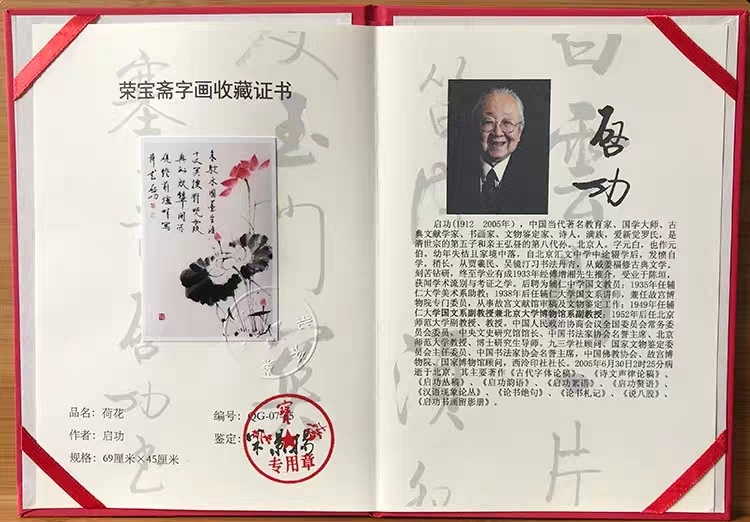 荣宝斋字画收藏证书
品名：荷花
编号：QG-07
作者：启功
鉴定：
规格：69厘米×45厘米
专用章
启功
启功(1912 2005年），中国当代著名教育家、国学大师、古
典文献学家、书画家、文物鉴定家、诗人，满族，爱新觉罗氏，是
清世宗的第五子和亲王弘昼的第八代孙。北京人，字元白，也作元
伯，幼年失怙且家境中落，自北京汇文中学中途辍学后，发愤自
学。稍长，从贾羲民、吴镜汀习书法丹青，从戴姜福修古典文学。
刻苦钻研，终至学业有成1933年经傅增湘先生推介，受业于陈垣，
获闻学术流别与考证之学。后聘为辅仁中学国文教员；1935年任辅
仁大学美术系助教；1938年后任辅仁大学国文系讲师，兼任故宫博
物院专门委员，从事故宫文献馆审稿及文物鉴定工作；1949年任辅仁
大学国文系副教授兼北京大学博物馆系副教授；1952年后任北京
师范大学副教授、教授。中国人民政治协商会议全国委员会常务委
员会委员、中央文史研究馆馆长、中国书法家协会名誉主席、北京
师范大学教授、博士研究生导师。九三学社顾问、国家文物鉴定委
员会主任委员、中国书法家协会名誉主席，中国佛教协会、故宫博
物院、国家博物馆顾问，西泠印社社长。2005年6月30日2时25分病
逝于北京。其主要著作《古代字体论稿》、《诗文声律论稿》、
《启功丛稿》、《启功韵语》、《启功絮语》、《启功赘语》、
《汉语现象论丛》、《论书绝句》、《论书札记》、《说八股》、
《启功书画留影册》。